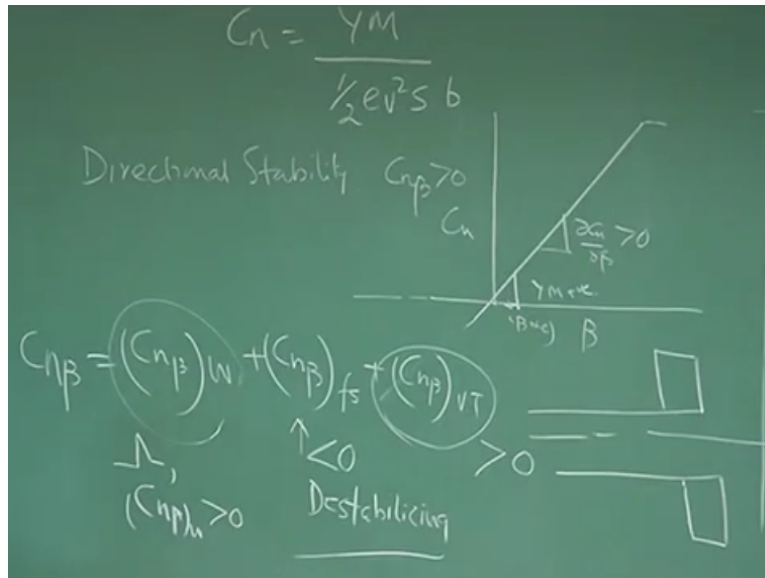 Cn = YM
½ ev²s b
Directional Stability Cnβ>0
Cn
∂Cn/∂β >0
YM +ve
(β+ve) β
Cnβ = (Cnβ)W + (Cnβ)fs + (Cnβ)VT
Λ, ↑<0 >0
(Cnβ)w >0 Destabilizing